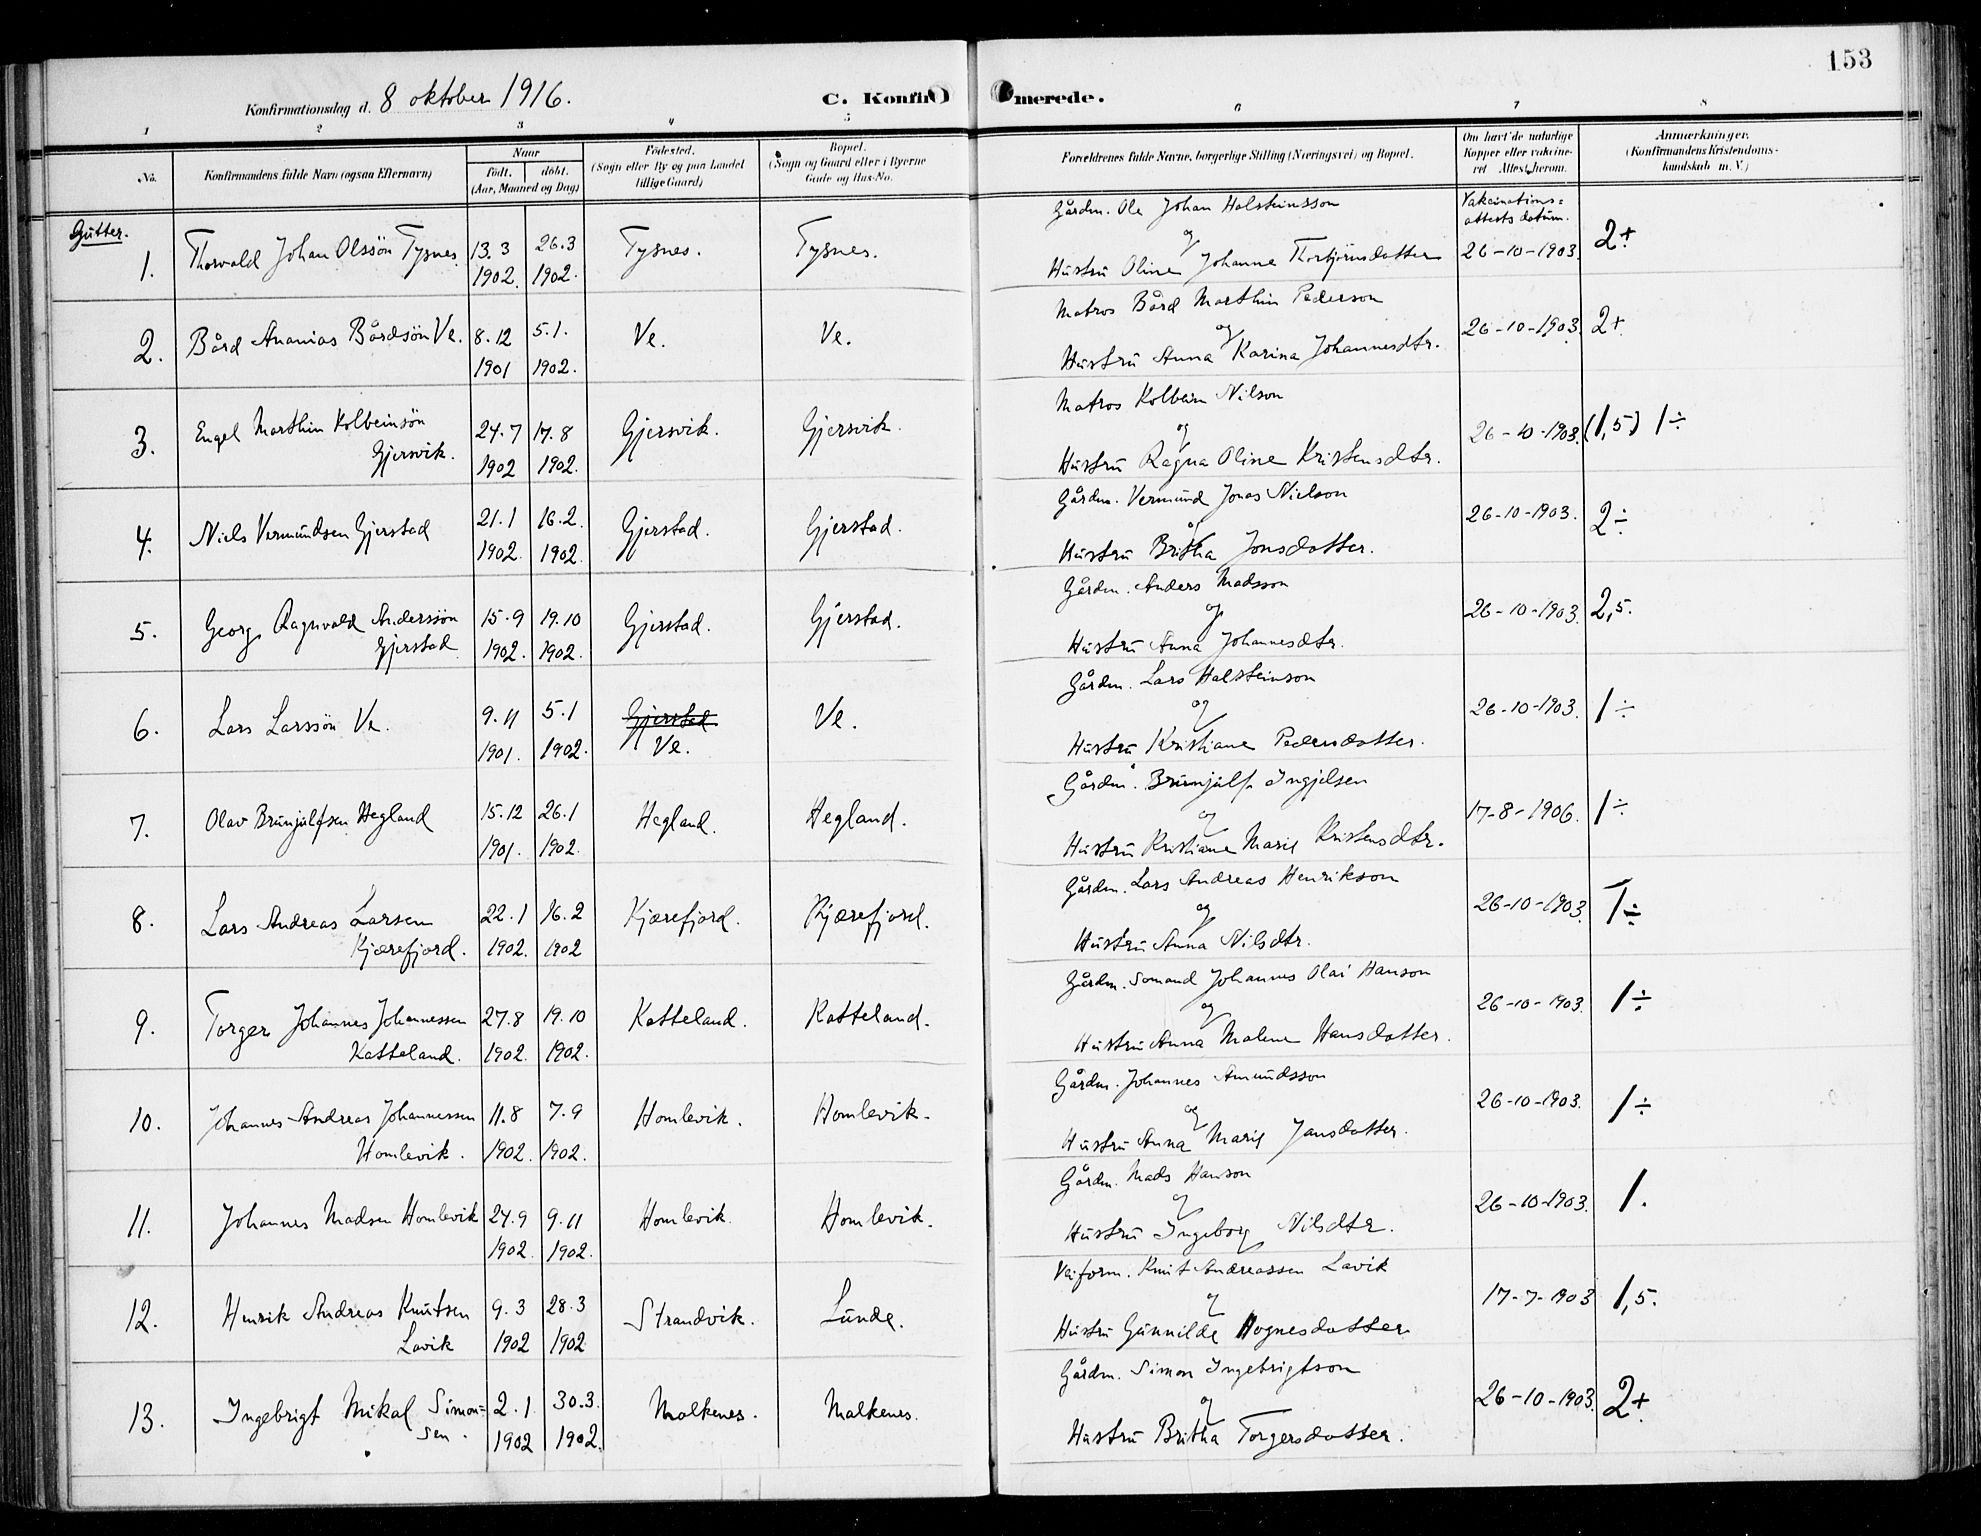 153
Konfirmationsdag d. 8 oktober 1916.
C. Konfirmerede.
1 2 3 4 5 6 7 8
No.
Konfirmandens fulde Navn (ogsaa Efternavn)
Naar
födt. döbt.
(Aar, Maaned og Dag)
Födested.
(Sogn eller By og paa Landet
tillige Gaard)
Bopæl.
(Sogn og Gaard eller i Byerne
Gade og Hus-No.
Forældrenes fulde Navne, borgerlige Stilling (Næringsvei) og Bopæl.
Om havt de naturlige
Kopper eller vakcine-
ret Attest herom.
Anmærkninger.
(Konfirmandens Kristendoms-
kundskab m. V.)
Gutter.
Vakcinations=
attests datum.
1. Thorvald Johan Olssön Tysnes. 13.3 1902. 26.3 1902. Tysnes. Tysnes.
Gårdm. Ole Johan Halsteinsson
og
Hustru Oline Johanne Thorbjörnsdotter 26-10-1903. 2+
2. Bård Ananias Bårdsön Ve. 8.12 1901 5.1. 1902. Ve. Ve.
Matros Bård Marthin Pederson
og
Hustru Anna Karina Johannesdtr. 26-10-1903. 2+
3. Engel Marthin Kolbeinsön
Gjersvik. 24.7 1902 17.8 1902. Gjersvik. Gjersvik.
Matros Kolbein Nilson
og
Hustru Ragna Oline Kristensdtr. 26-10-1903. (1,5) 1÷
4. Niels Vermundsen Gjerstad 21.1 1902. 16.2. 1902. Gjerstad. Gjerstad.
Gårdm. Vermund Jonas Nielson
og
Hustru Britha Jonsdotter. 26-10-1903. 2÷
5. Georg Ragnvald Anderssön
Gjerstad 15.9 1902. 19.10 1902. Gjerstad. Gjerstad.
Gårdm. Anders Madsson
og
Hustru Anna Johannesdtr. 26-10-1903. 2,5.
6. Lars Larssön Ve. 9.11 1901. 5.1 1902. Gjerstad. Ve. Ve.
Gårdm. Lars Halsteinson
og
Hustru Kristiane Pedersdotter. 26-10-1903. 1÷
7. Olav Brunjulfsen Hegland 15.12 1901. 26.1 1902. Hegland. Hegland.
Gårdm. Brunjulf Ingjelsen
og
Hustru Kristiane Marie Kristensdtr. 17-8-1906. 1÷
8. Lars Andreas Larsen
Kjærefjord. 22.1 1902. 16.2 1902 Kjærefjord. Kjærefjord.
Gårdm. Lars Andreas Henrikson
og
Hustru Anna Nilsdtr. 26-10-1903. 1÷
9. Torger Johannes Johannessen
Katteland. 27.8 1902. 19.10 1902. Katteland. Katteland.
Gårdm. Somand Johannes Olai Hanson
og
Hustru Anna Malene Hansdotter. 26-10-1903. 1÷
10. Johannes Andreas Johannessen
Homlevik. 11.8 1902. 7.9 1902. Homlevik. Homlevik.
Gårdm. Johannes Amundsson
og
Hustru Anna Marie Jansdotter. 26-10-1903. 1÷
11. Johannes Madsen Homlevik 24.9 1902. 9.11 1902. Homlevik. Homlevik.
Gårdm. Mads Hanson
og
Hustru Ingeborg Nilsdtr. 26-10-1903. 1.
12. Henrik Andreas Knutsen
Lavik 9.3 1902 28.3 1902 Strandvik. Lunde.
Veiform. Knut Andreassen Lavik
og
Hustru Gunnilde Hognesdotter 17-7-1903 1,5.
13. Ingebrigt Mikal Simon=
sen. 2.1 1902 30.3. 1902. Malkenes. Malkenes.
Gårdm. Simon Ingebrigtson
og
Hustru Britha Torgersdotter. 26-10-1903. 2+.